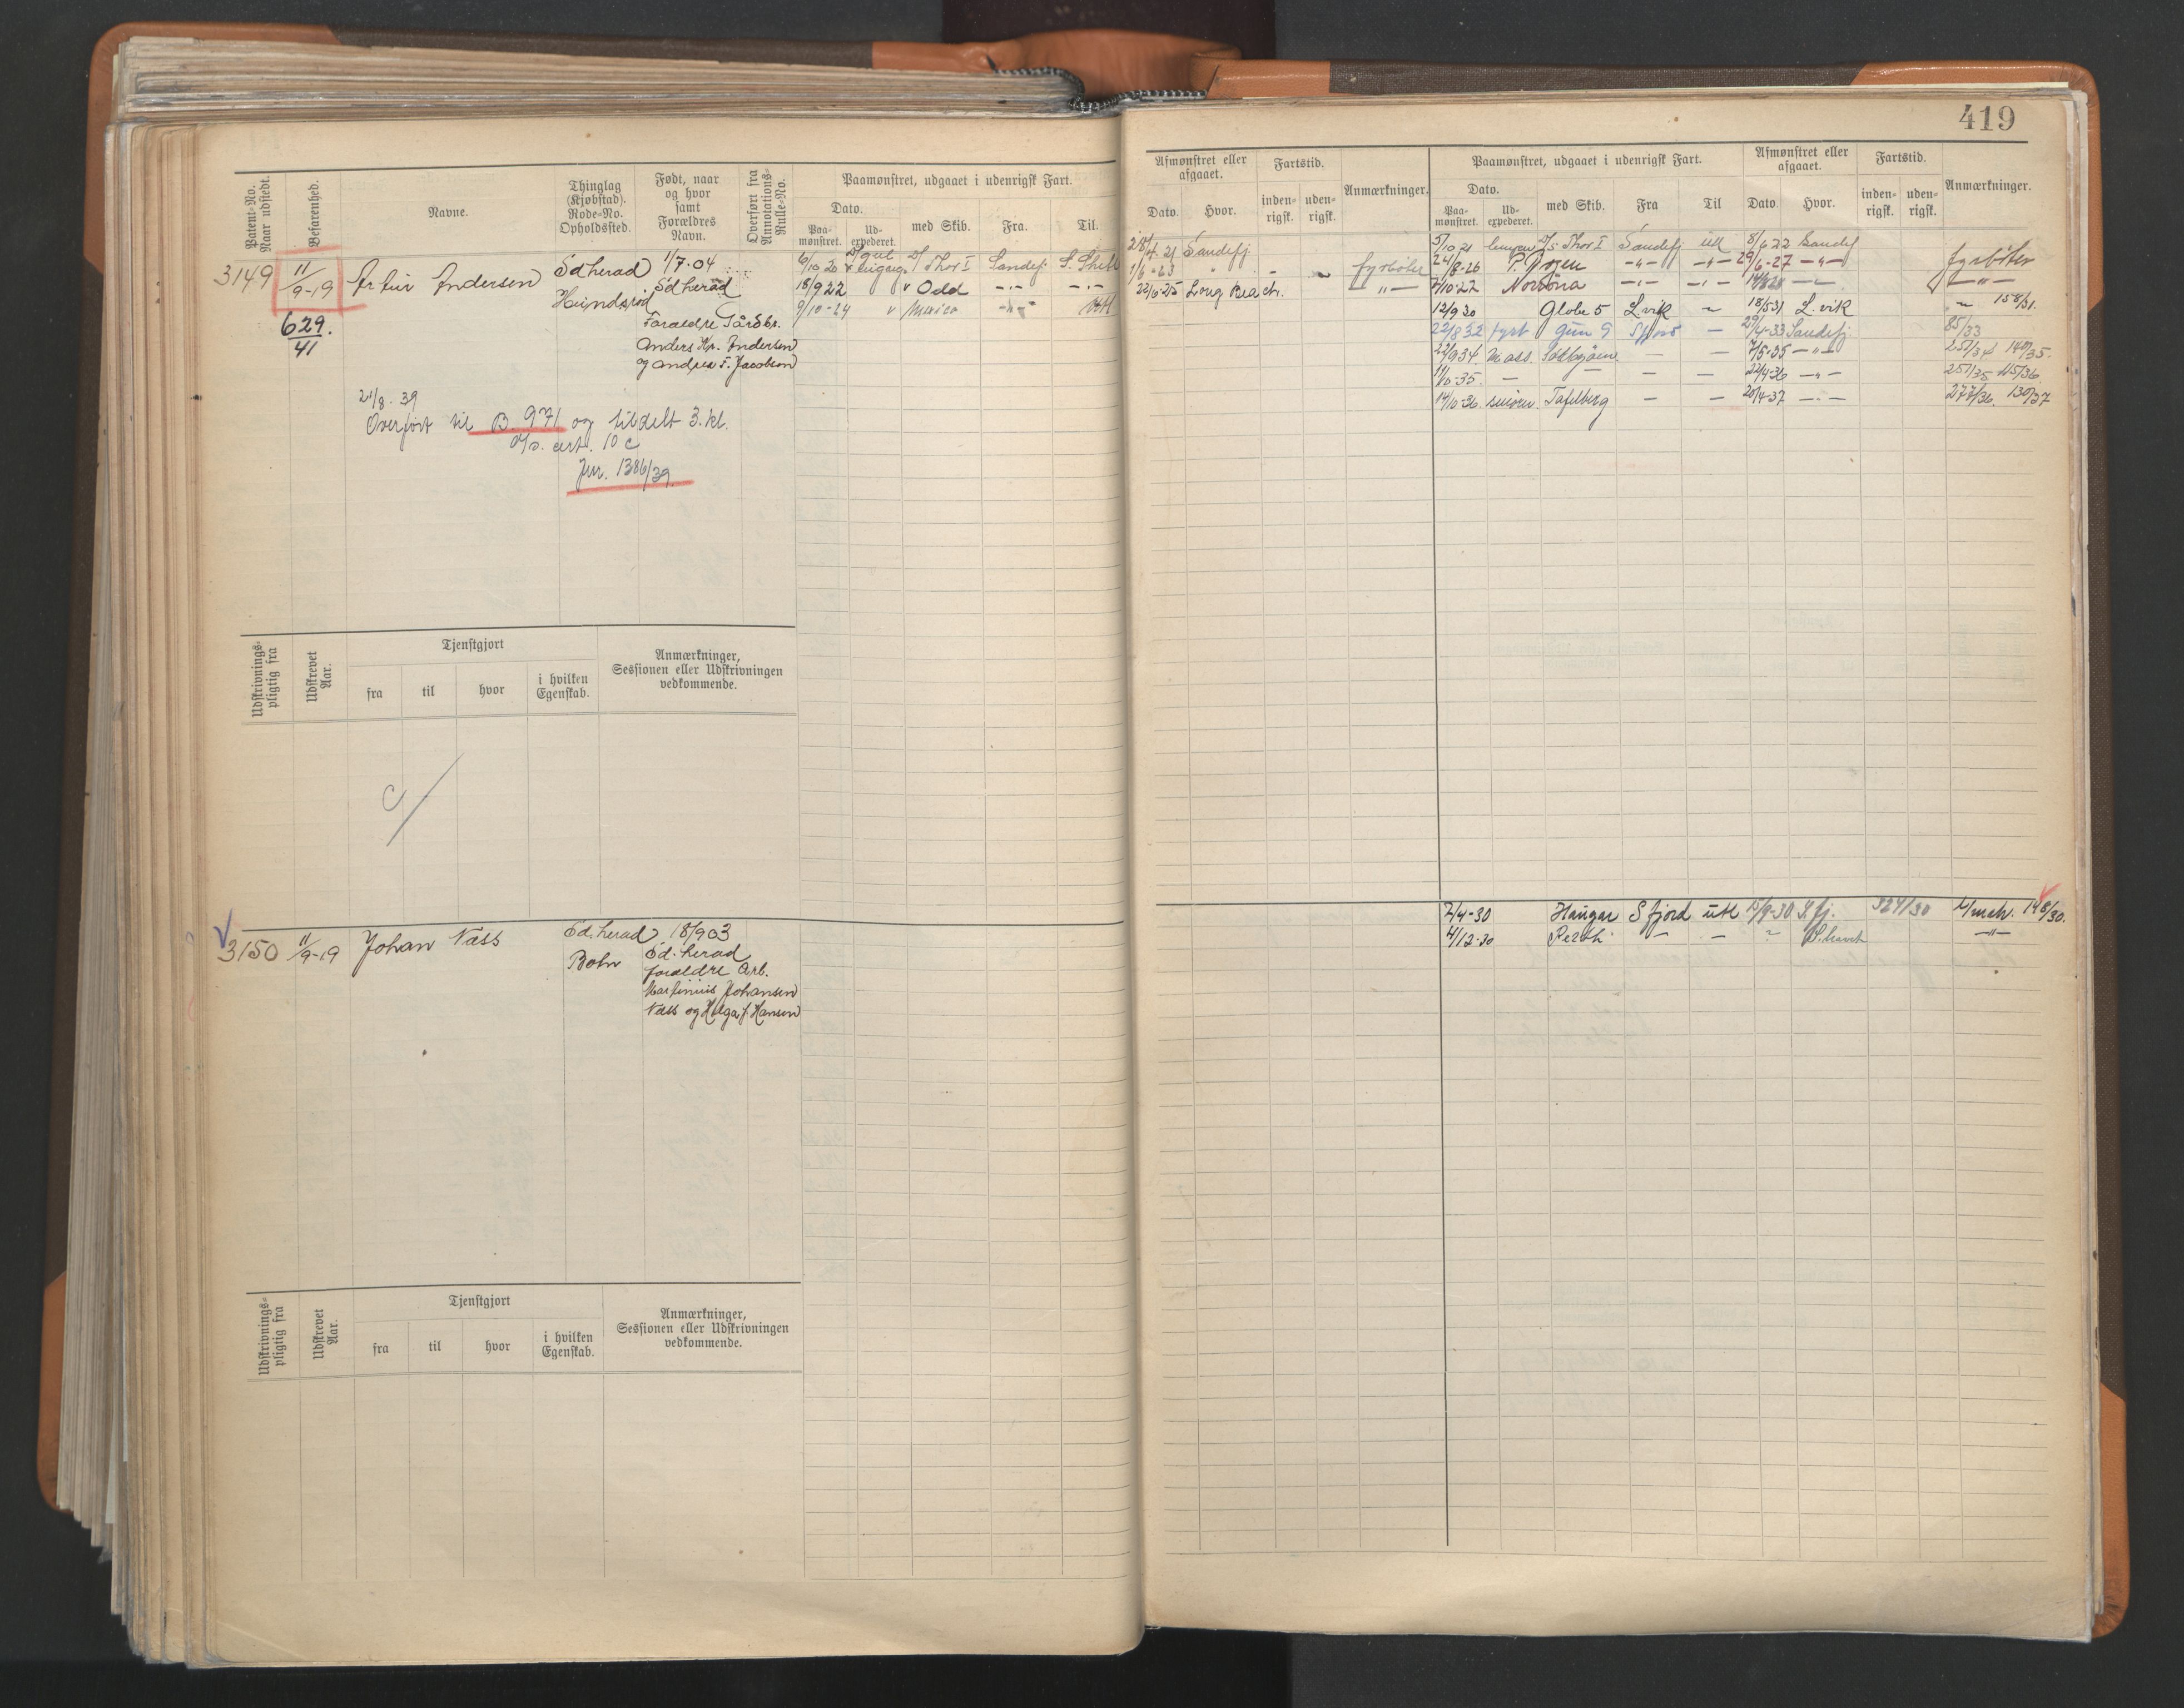 419
Patent-No. Naar udstedt.
Befarenhed.
Navne.
Thinglag (Kjøbstad). Rode-No. Opholdssted.
Født, naar og hvor samt Forældres Navn.
Overført fra Annotations-Rulle-No.
Paamønstret, udgaaet i udenrigsk Fart.
Dato.
Paa-mønstret. Ud-expederet. med Skib. Fra. Til.
Afmønstret eller afgaaet. Fartstid. Anmærkninger.
Dato. Hvor. inden-rigsk. uden-rigsk.
Paamønstret, udgaaet i udenrigsk Fart. Afmønstret eller afgaaet. Fartstid. Anmærkninger.
Dato.
Paa-mønstret. Ud-expederet. med Skib. Fra Til Dato. Hvor. inden-rigsk. uden-rigsk.
3149 11/9-19 Artur Andersen Sdherad 1/7-04
Sdherad
Forældre Gårdbr.
Anders Hr. Andersen
og Andrea F. Jacobsen
629./41
6/10 20 Thor I Sandefj. S. Shetl
18/9 22 Odd -"- -"-
9/10-24
28/4. 21 Sandefj
1/6-23 " - fyrbøter
22/6-25 Long Beach. -"-
5/10 21 D/s. Thor I Sandefj utl 8/6 22 Sandef
24/8-26 -"- -"- 29/6-27 -"- fyrbøter
7/10-27 Norrøna -"- -"- -"-
12/9 30 Globe 5 L.vik 18/5 31 L.vik 158/31.
22/8 32 fyrb Gun 9 Sfjord - 29/4-33 Sandefj. 85/33
27/9 34 Solbjøen - - 7/5-35 -"- 140/35.
11/10-35. - - - 22/4-36 -"- 257/35 115/36
14/10-36. Tafelberg - - 20/4-37 -"- 277/36. 130/37
21/8. 39
Overført til B. 971 og tildelt 3. kl.
cert. 10 c
Jnr. 1386/39.
Udskrivnings-pligtig fra
Udskrevet Aar.
Tjenstgjort
fra til hvor i hvilken Egenskab.
Anmærkninger, Sessionen eller Udskrivningen vedkommende.
3150 11/9-19 Johan Næss Sd. herad 18/9 03
Bohn Sd. herad
forældre Arb.
Martinius Johansen
Næss og Helga J. Hansen
2/4-30 Haugar Sfjord utl 15/9-30 S.fj. 324/30 148/30.
4/12-30 Perth - - -"-
Udskrivnings-pligtig fra
Udskrevet Aar.
Tjenstgjort
fra til hvor i hvilken Egenskab.
Anmærkninger, Sessionen eller Udskrivningen vedkommende.